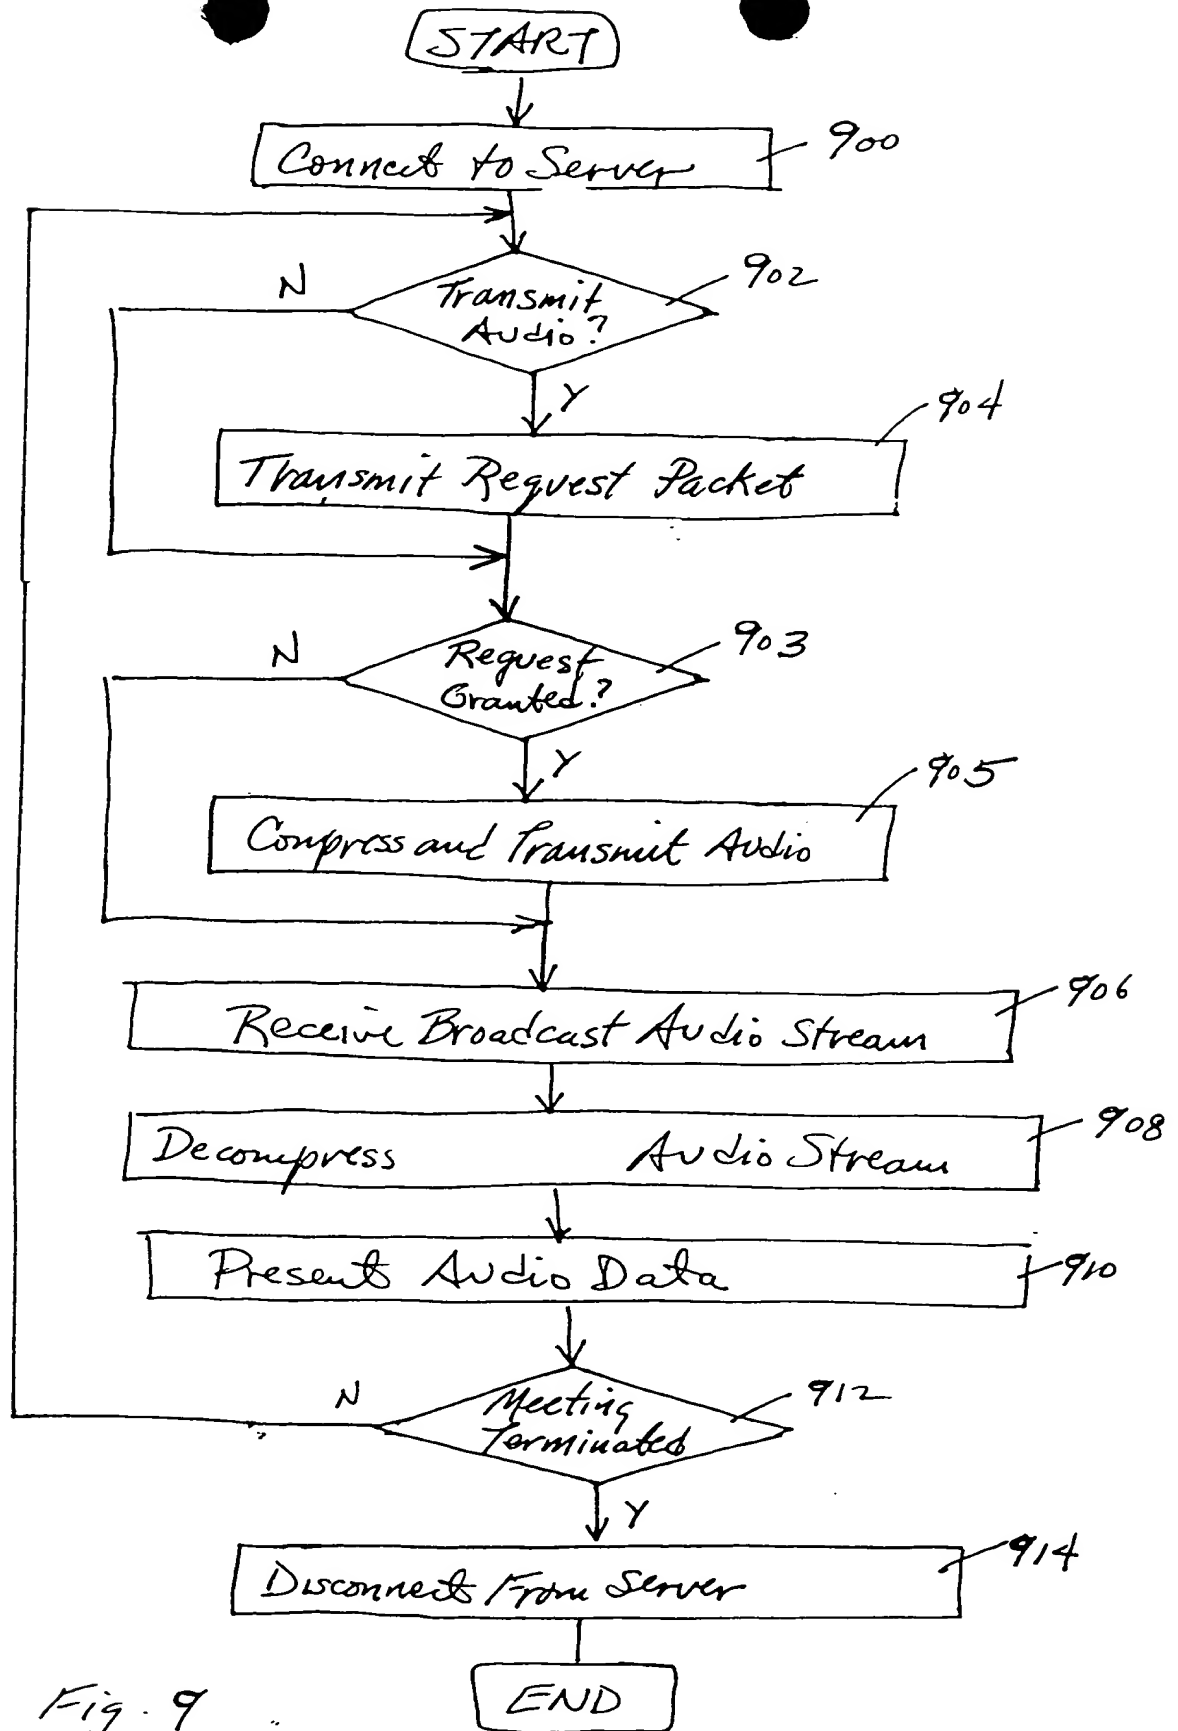 START
Connect to Server
900
N
902
Transmit
Audio?
Y
904
Transmit Request Packet
N
903
Request
Granted?
Y
905
Compress and Transmit Audio
906
Receive Broadcast Audio Stream
908
Decompress Audio Stream
Present Audio Data
910
N
912
Meeting
Terminated
Y
914
Disconnect From Server
END
Fig. 9